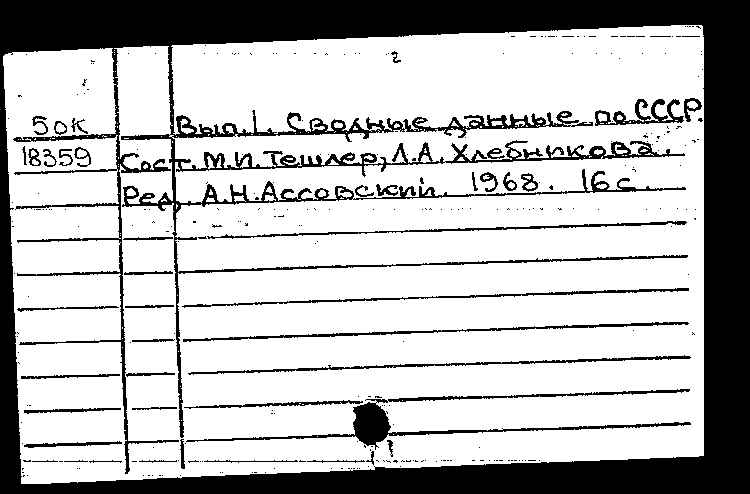 2
5ок Вып.1. Сводные данные по СССР.
18359 Сост. М.И. Тешлер, Л.А. Хлебникова.
Ред. А.Н. Ассовский. 1968. 16 с.